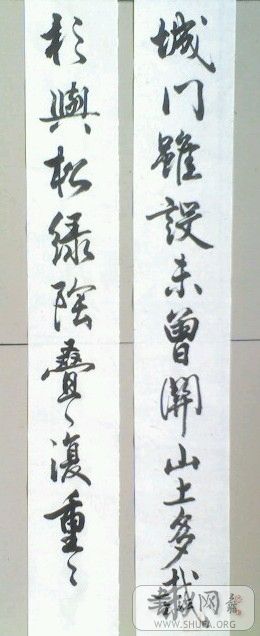 城门雖設未曾開山土多栽
杉與松緑陰疊々復重々
书法网
WWW.SHUFA.ORG